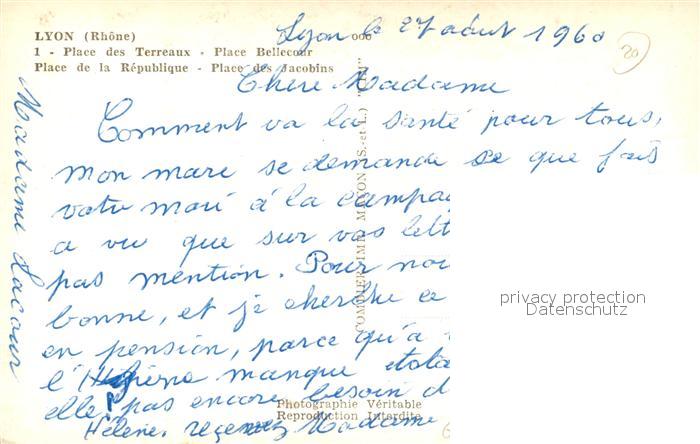 LYON (Rhône)
1 - Place des Terreaux - Place Bellecour
Place de la République - Place des Jacobins
Lyon le 27 août 1960
20
Chère Madame
Comment va la santé pour tous,
mon mare se demande se que fais
votre mari à la campa
a vu que sur vos lett
pas mention. Pour nou
bonne, et je cherche a
en pension, parce qu'a
l'Hygiène manque
elle pas encore besoin d
Hélène. recevez Madame
Madame Lacour
COMBIER IMP. MACON (S.-et-L.) "CIM"
Photographie Véritable
Reproduction Interdite
privacy protection
Datenschutz